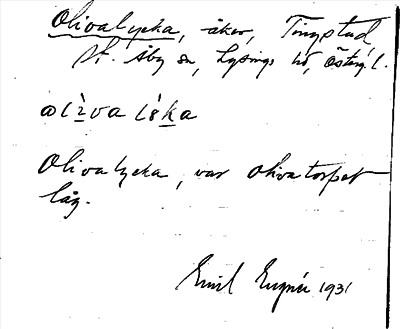 Olivalycka, åker, Tingstad,
St. Åby sn, Lysings hd, Östergötl.
Olivalycka, var Olivatorpet
låg.
Emil 1931